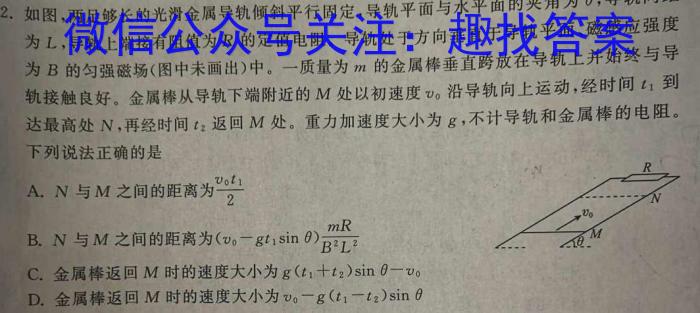 2. 如图,两足够长的光滑金属导轨倾斜平行固定,导轨平面与水平面的夹角为θ,导轨间距
为L,导轨上端接有阻值为R的定值电阻,导轨处于方向垂直于导轨平面、磁感应强度
微信公众号关注:趣找答案
为B的匀强磁场(图中未画出)中。一质量为m的金属棒垂直跨放在导轨上并始终与导
轨接触良好。金属棒从导轨下端附近的M处以初速度v₀沿导轨向上运动,经时间t₁到
达最高处N,再经时间t₂返回M处。重力加速度大小为g,不计导轨和金属棒的电阻。
下列说法正确的是
A. N与M之间的距离为v₀t₁/2
B. N与M之间的距离为(v₀-gt₁sin θ)mR/B²L²
C. 金属棒返回M时的速度大小为g(t₁+t₂)sin θ-v₀
D. 金属棒返回M时的速度大小为v₀-g(t₁-t₂)sin θ
R
N
v₀
M
θ